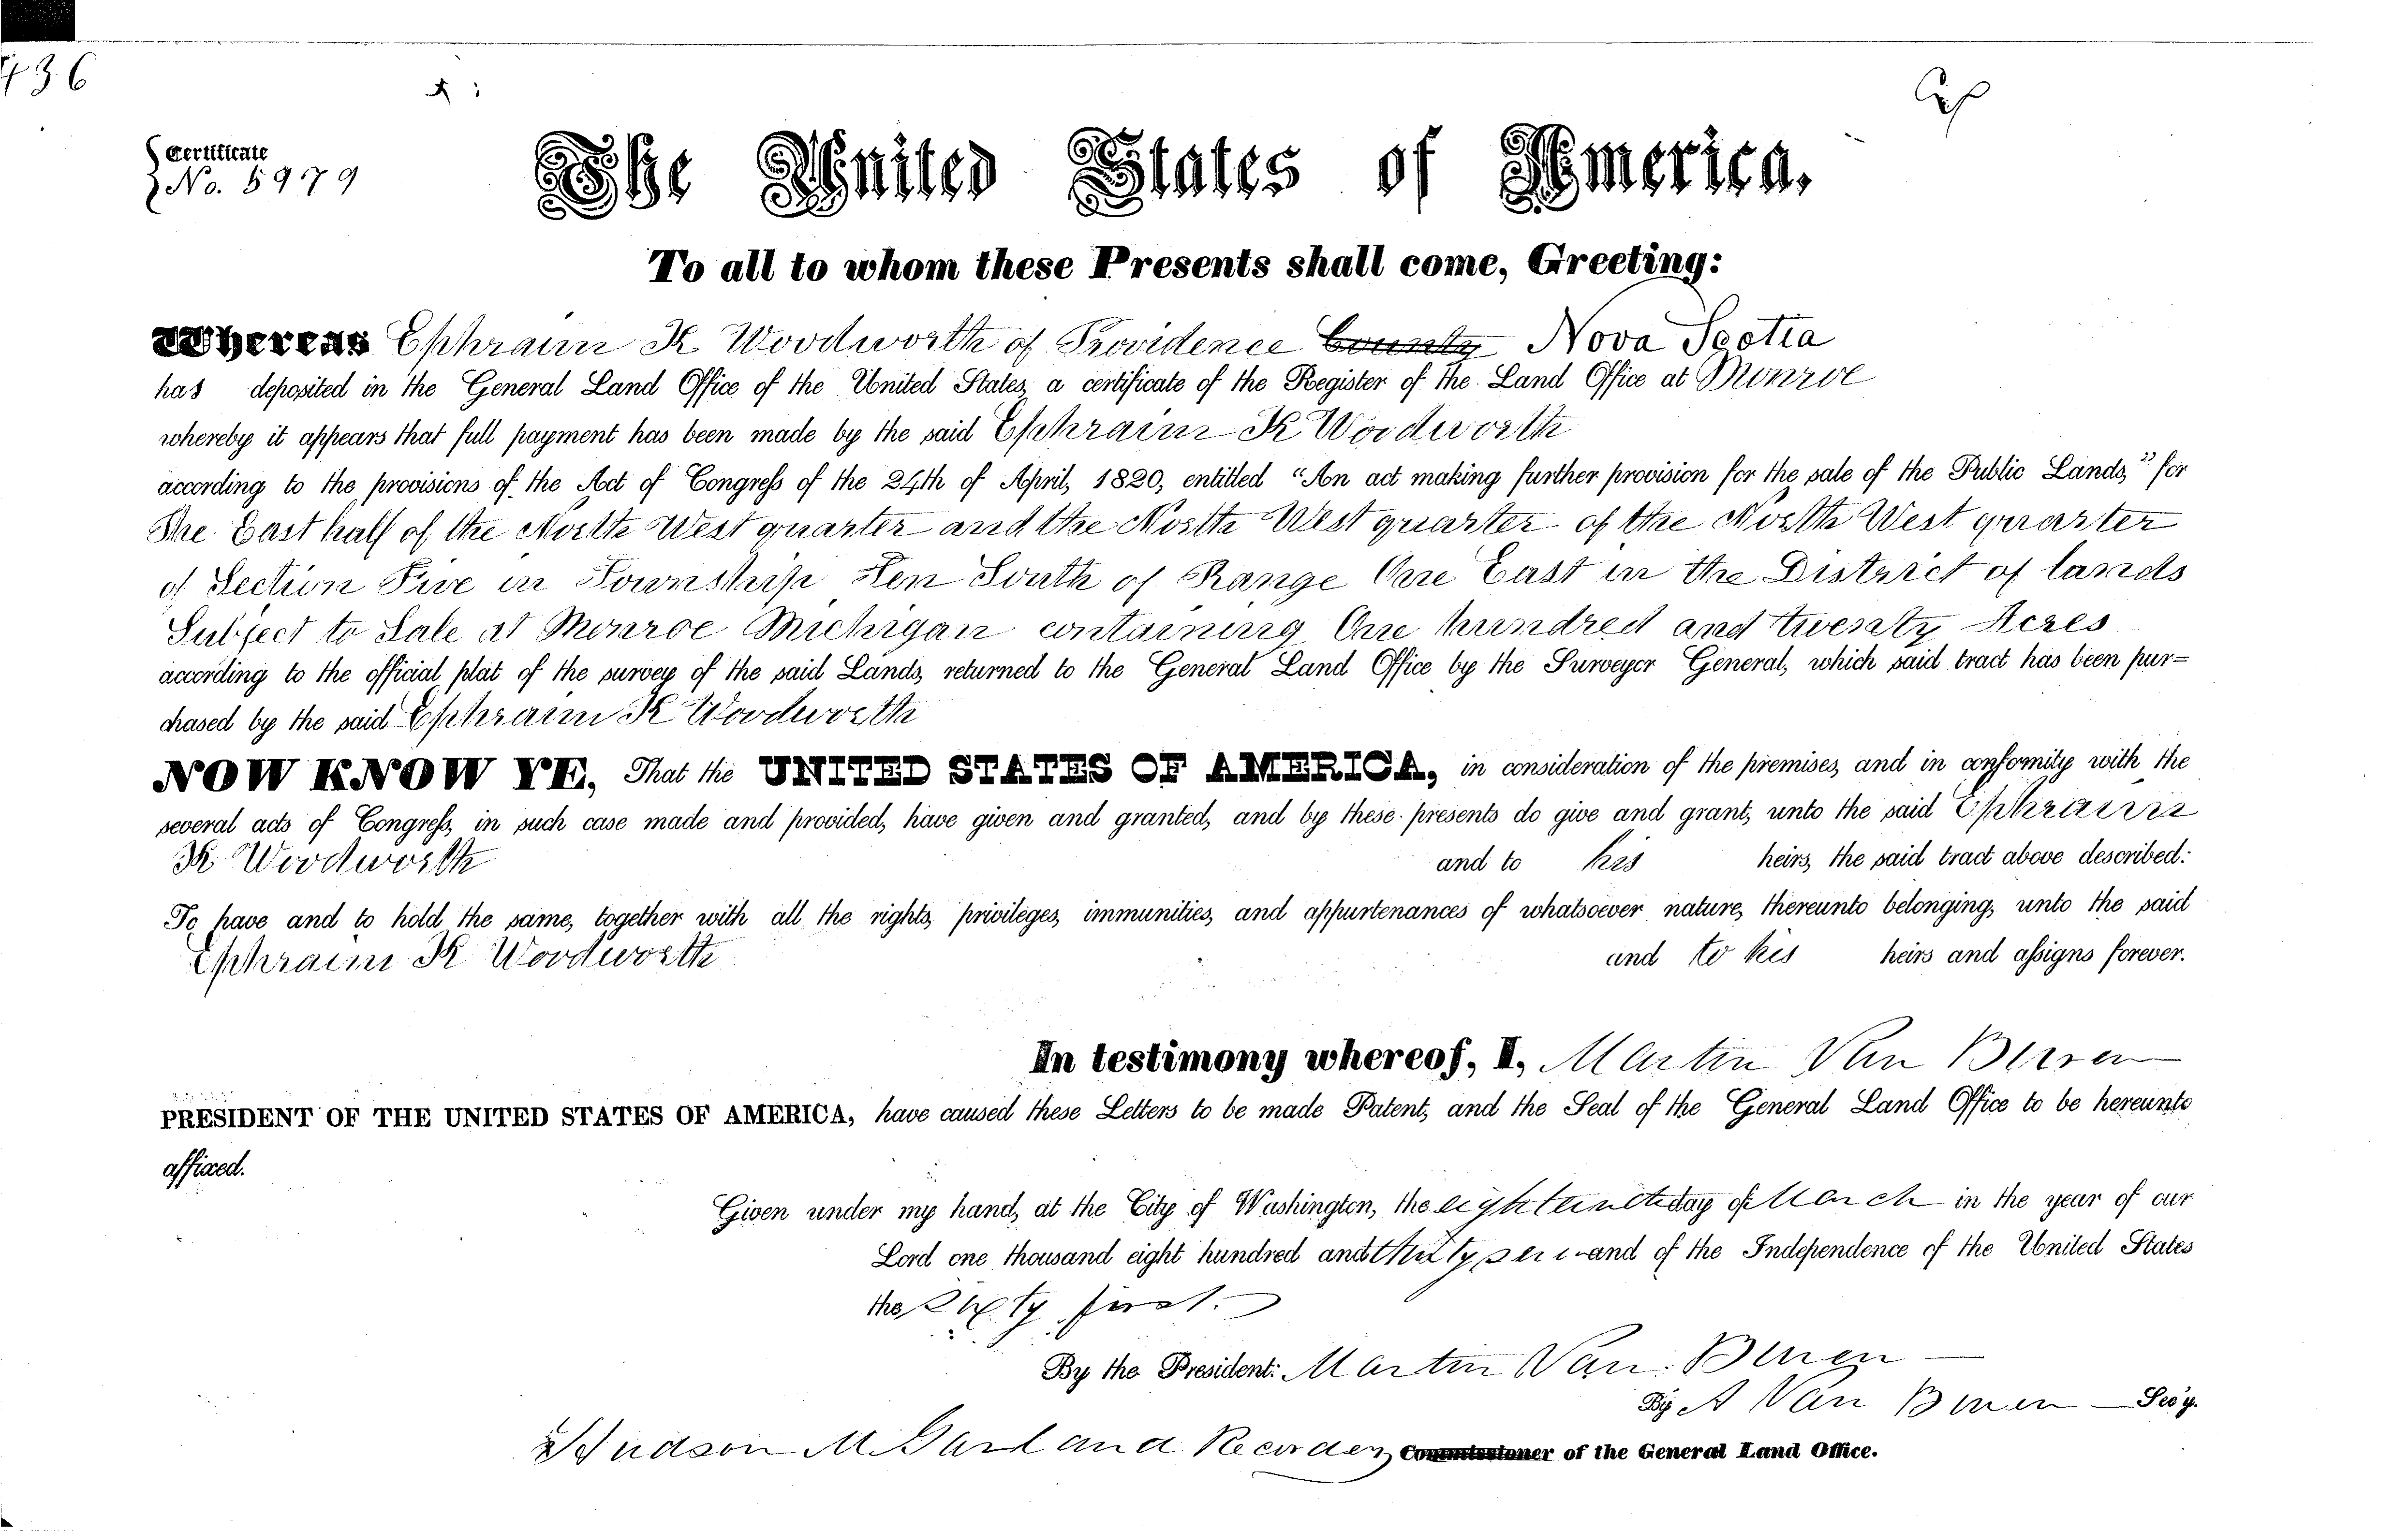 436
Certificate
No. 5979
The United States of America,
To all to whom these Presents shall come, Greeting:
Whereas Ephraim K Woodworth of Providence County Nova Scotia
has deposited in the General Land Office of the United States, a certificate of the Register of the Land Office at Monroe
whereby it appears that full payment has been made by the said Ephraim K Woodworth
according to the provisions of the Act of Congress of the 24th of April, 1820, entitled “An act making further provision for the sale of the Public Lands,” for
The East half of the North West quarter and the North West quarter of the North West quarter
of Section Five in Township Ten South of Range One East in the District of lands
Subject to Sale at Monroe Michigan containing One hundred and twenty Acres
according to the official plat of the survey of the said Lands, returned to the General Land Office by the Surveyor General, which said tract has been pur=
chased by the said Ephraim K Woodworth
NOW KNOW YE, That the UNITED STATES OF AMERICA, in consideration of the premises, and in conformity with the
several acts of Congress, in such case made and provided, have given and granted, and by these presents do give and grant, unto the said Ephraim
K Woodworth and to his heirs, the said tract above described:
To have and to hold the same, together with all the rights, privileges, immunities, and appurtenances of whatsoever nature, thereunto belonging, unto the said
Ephraim K Woodworth and to his heirs and assigns forever.
In testimony whereof, I, Martin Van Buren
PRESIDENT OF THE UNITED STATES OF AMERICA, have caused these Letters to be made Patent, and the Seal of the General Land Office to be hereunto
affixed.
Given under my hand, at the City of Washington, the eighteenth day of March in the year of our
Lord one thousand eight hundred and thirty seven and of the Independence of the United States
the Sixty first.
By the President: Martin Van Buren
By A Van Buren Sec'y.
Hudson M Garland Recorder Commissioner of the General Land Office.